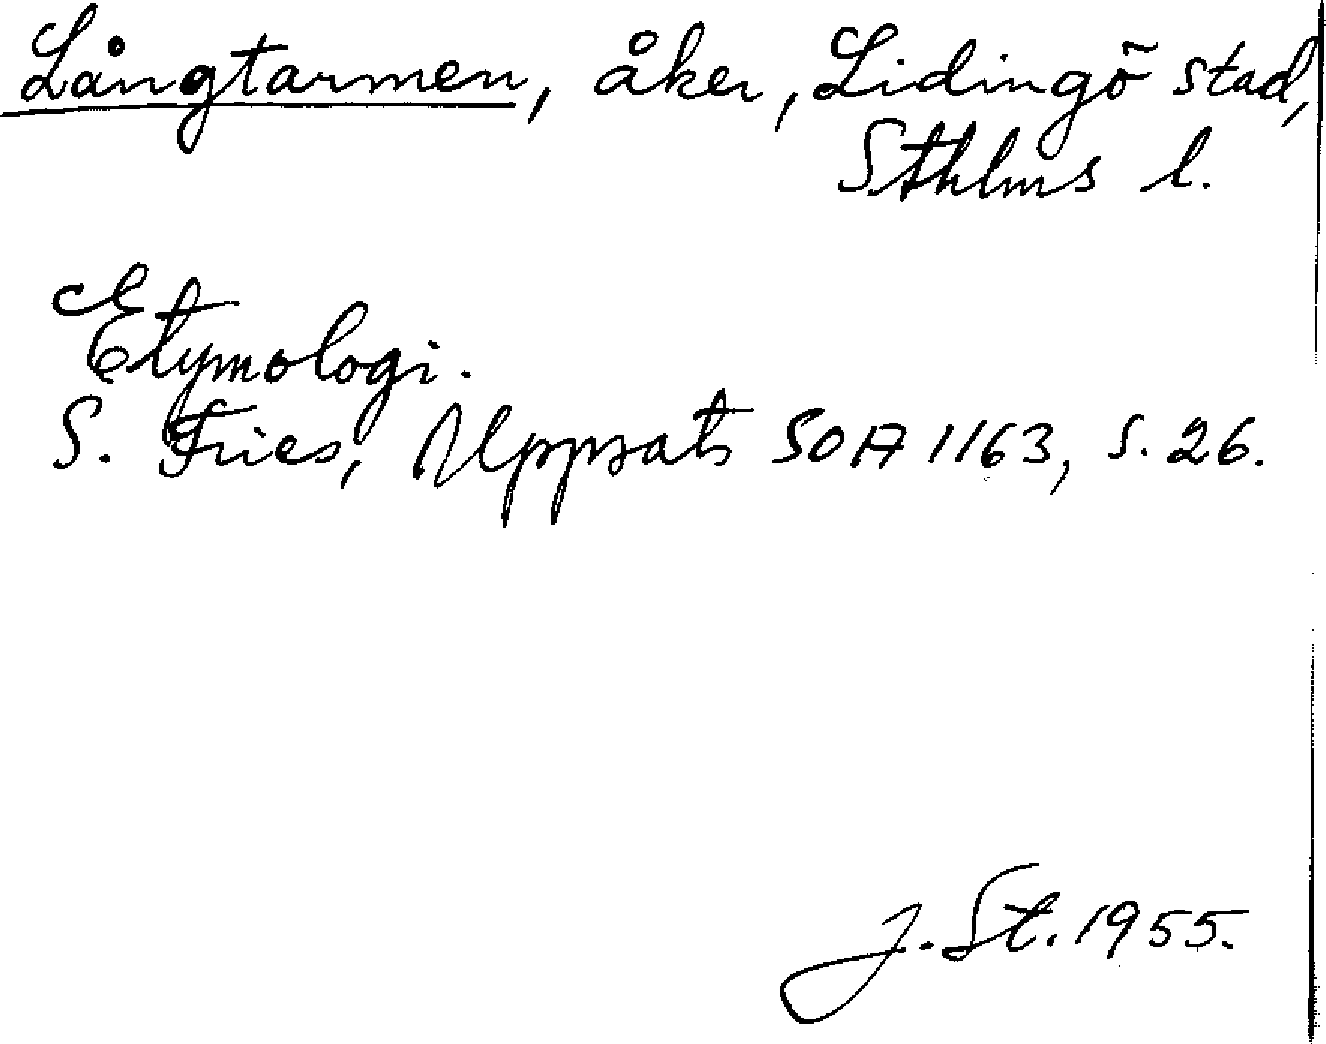 Långtarmen, åker, Lidingö stad,
Sthlms l.
Etymologi.
S. Fries, Uppsats SOA 1163, s. 26.
J. St. 1955.